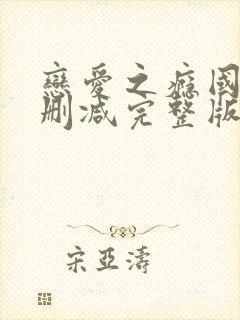 戀愛之癮國
刪減完整版
宋亞濤